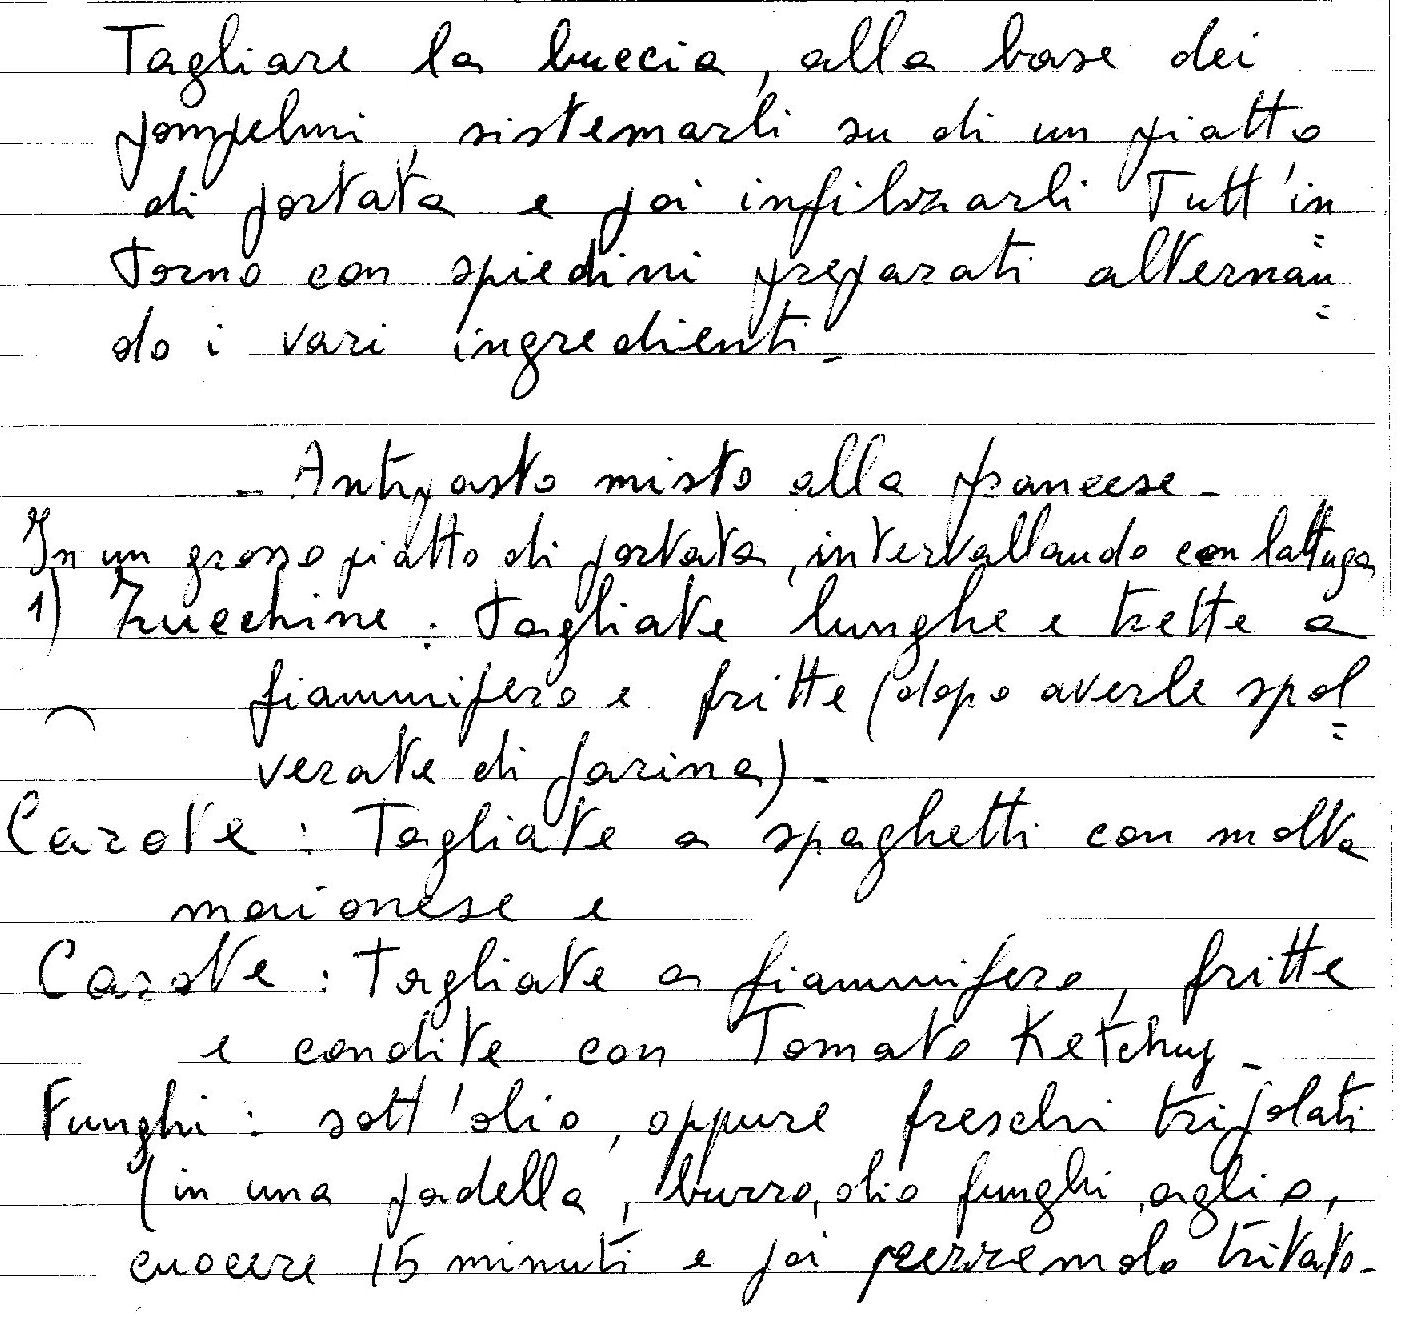 Tagliare la buccia, alla base dei
pompelmi, sistemarli su di un piatto
di portata e poi infilzarli Tutt'in=
torno con spiedini preparati alternan=
do i vari ingredienti.
- Antipasto misto alla francese -
In un grosso piatto di portata, intervallando con lattuga
1) Zucchine : Tagliate lunghe e trette a
fiammifero e fritte (dopo averle spol=
verate di farina).
Carote : Tagliate a spaghetti con molta
maionese e
Carote : Tagliate a fiammifero, fritte
e condite con Tomato Ketchup -
Funghi : sott'olio, oppure freschi trifolati
(in una padella, burro, olio funghi, aglio,
cuocere 15 minuti e poi perzzemolo tritato.